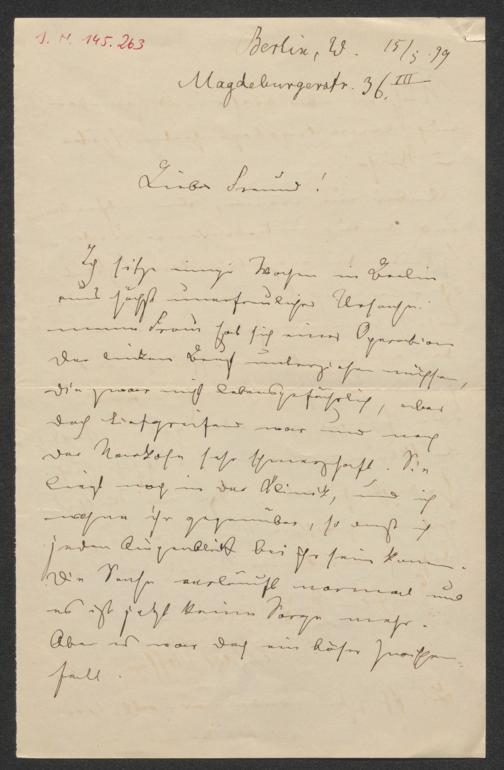 I. N. 145.263
Berlin, W. 15/5.99
Magdeburgerstr. 36. III
Lieber Freund!
Ich sitze einige Wochen in Berlin
aus höchst unerfreulicher Ursache.
Meine Frau hat sich einer Operation
der linken Brust unterziehen müssen,
die zwar nicht lebensgefährlich, aber
doch tiefgreifend war und nach
der Narkose sehr schmerzhaft. Sie
liegt noch in der Klinik, und ich
wohne ihr gegenüber, so daß ich
jeden Augenblick bei ihr sein kann.
Die Sache verläuft normal und
es ist jetzt keine Sorge mehr.
Aber es war doch ein böser Zwischen-
fall.